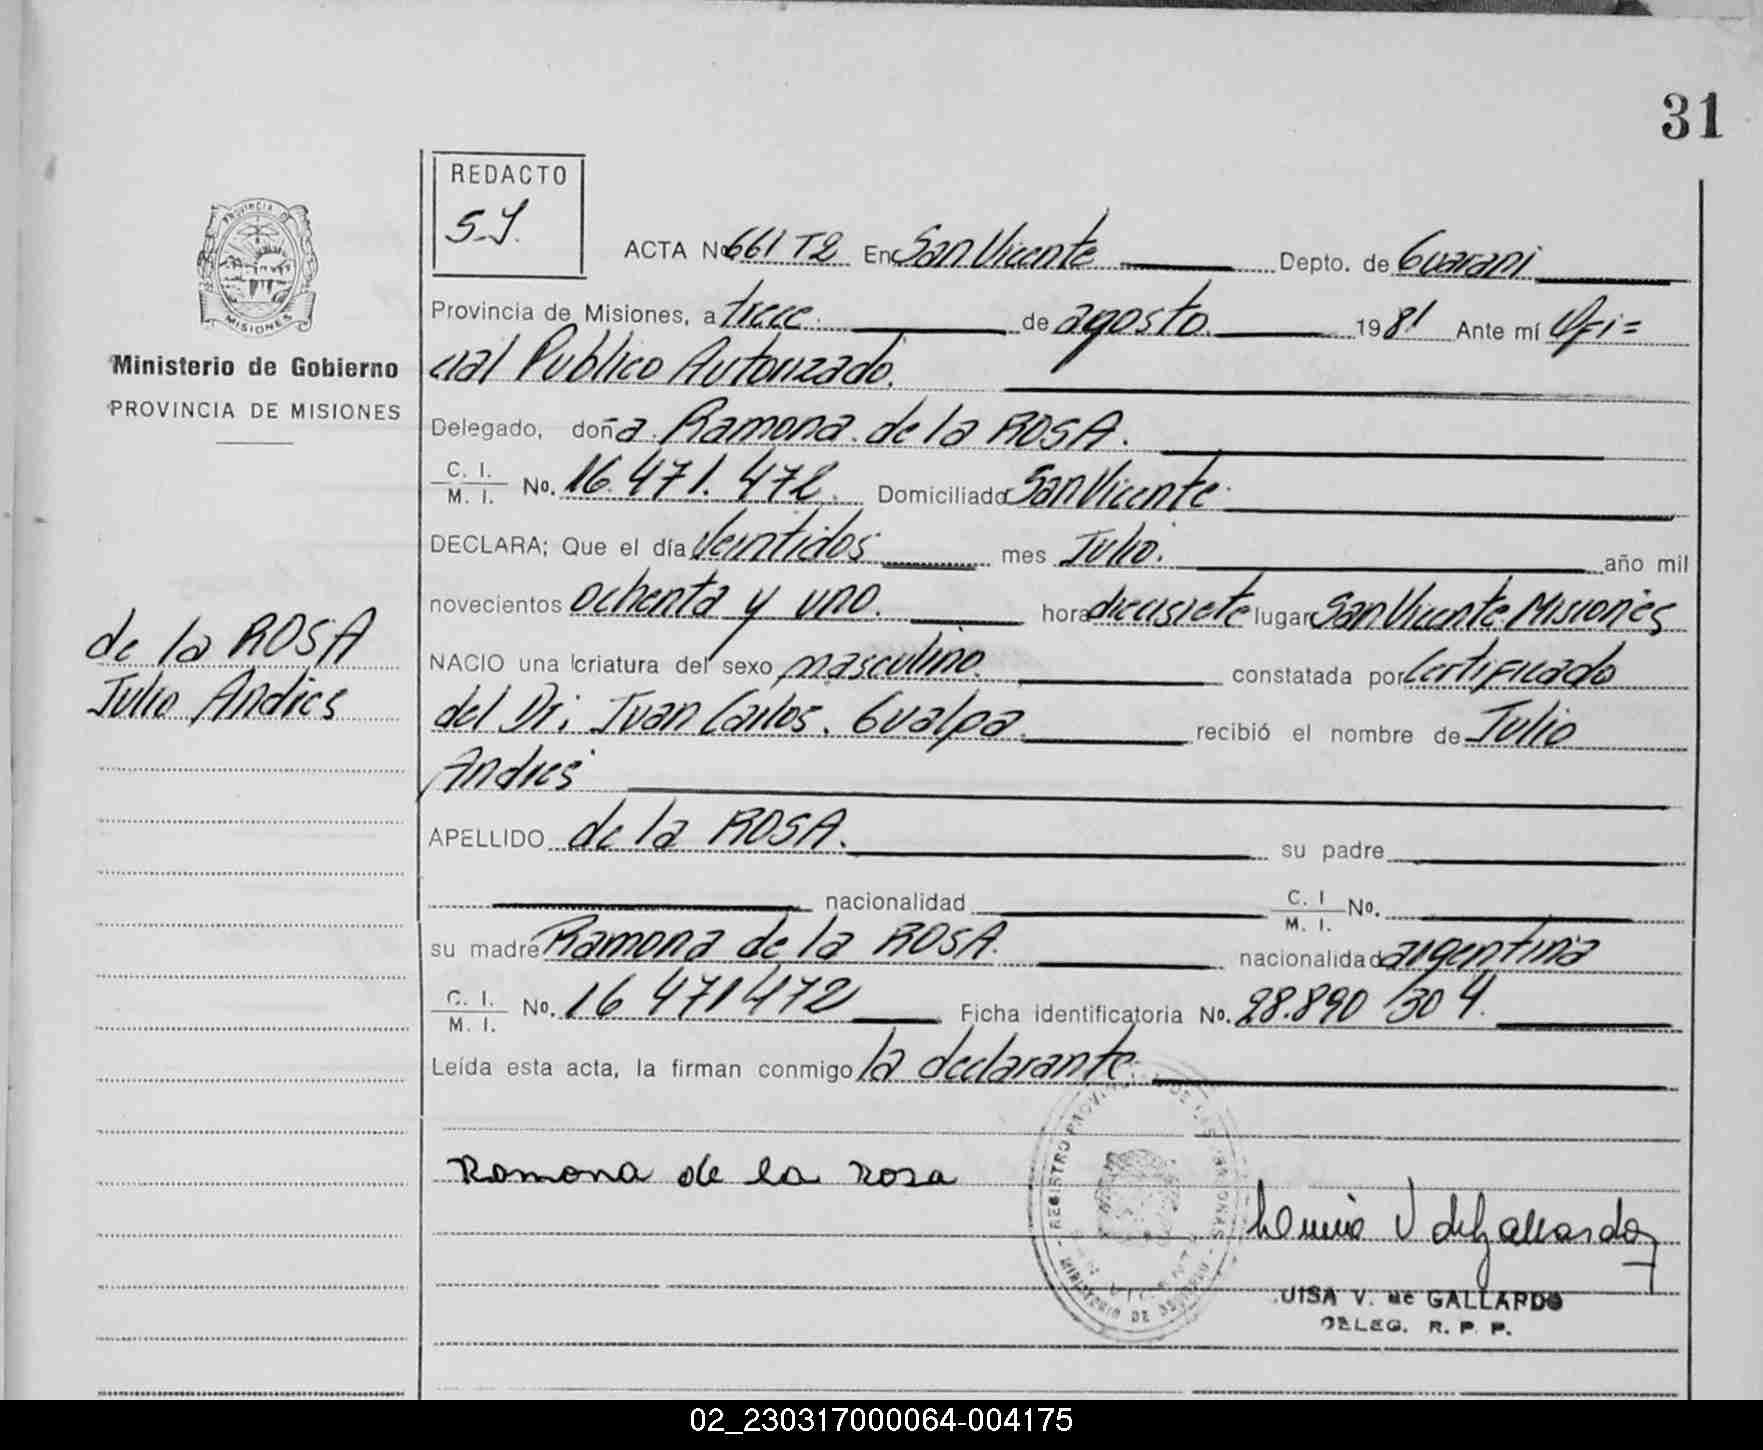 31
REDACTO
S.J.
PROVINCIA DE
MISIONES
ACTA Nº 661 T2 En San Vicente Depto. de Guarani
Provincia de Misiones, a trece. de agosto. 1981 Ante mí Ofi=
cial Publico Autorizado.
Ministerio de Gobierno
PROVINCIA DE MISIONES
Delegado, doña Ramona de la ROSA.
C. I.
M. I. No. 16.471.472. Domiciliado San Vicente.
DECLARA; Que el día Veintidos mes Julio. año mil
novecientos ochenta y uno. hora diecisiete lugar San Vicente Misiones
de la ROSA
Julio Andres
NACIO una criatura del sexo masculino. constatada por Certificado
del Dr: Juan Carlos. Gualpa. recibió el nombre de Julio
Andres
APELLIDO de la ROSA. su padre
nacionalidad C. I
M. I. No.
su madre Ramona de la ROSA. nacionalidad argentina
C. I.
M. I. No. 16 471472 Ficha identificatoria No. 28.890/304.
Leída esta acta, la firman conmigo la declarante.
REGISTRO PROVINCIAL DE LAS PERSONAS
MINISTERIO DE GOBIERNO
Ramona de la Rosa
V de Gallardo
UISA V. de GALLARDO
DELEG. R. P. P.
02_230317000064-004175